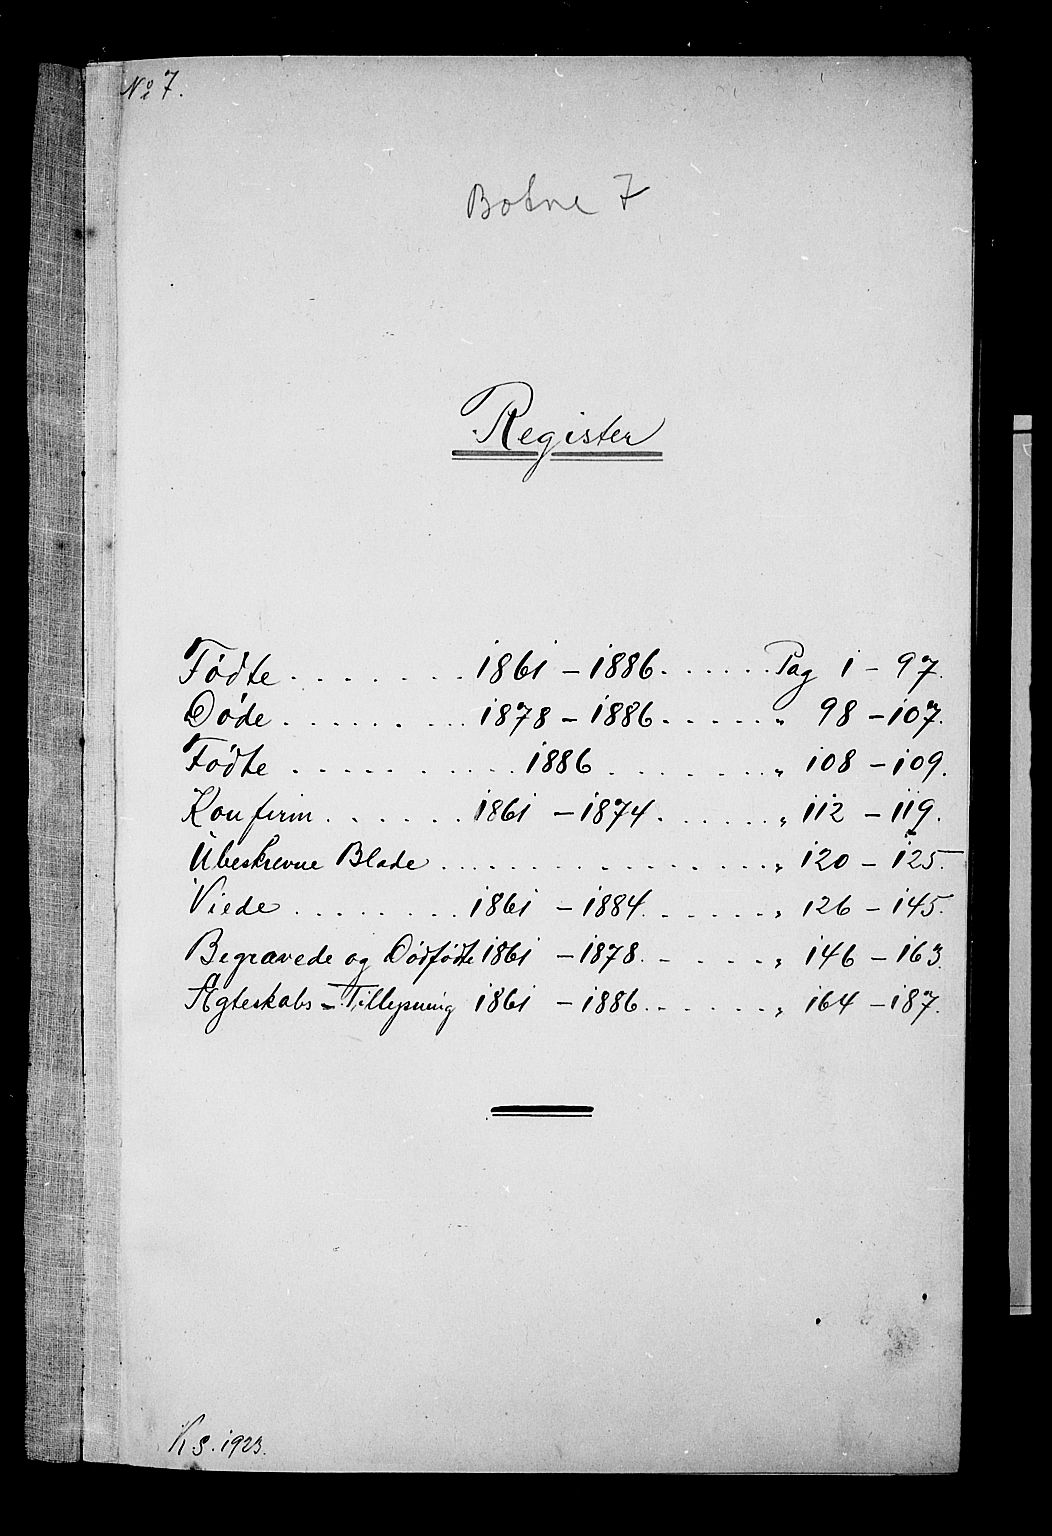 No 7.
Botne 7
Register
Fødte . . . . . . . 1861 – 1886 . . . . . . Pag 1 – 97.
Døde . . . . . . . 1878 – 1886 . . . . . „ 98 – 107.
Fødte . . . . . . . . . . 1886 . . . . . . . . „ 108 – 109.
Konfirm . . . . . . 1861 – 1874 . . . . . . „ 112 – 119.
Ubeskrevne Blade . . . . . . . . . . . . . . . „ 120 – 125.
Viede . . . . . . . . 1861 – 1884 . . . . . . „ 126 – 145.
Begravede og Dödfödte 1861 – 1878 . . . . . . „ 146 – 163.
Ægteskabs-Tillysning 1861 – 1886 . . . . . . „ 164 – 187.
K S. 1923.